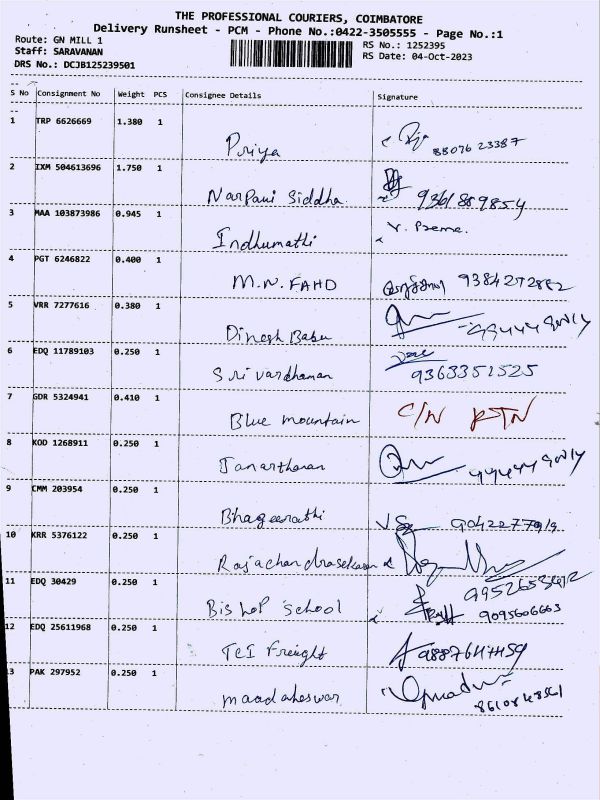 THE PROFESSIONAL COURIERS, COIMBATORE
Delivery Runsheet - PCM - Phone No.:0422-3505555 - Page No.:1
Route: GN MILL 1
RS No.: 1252395
Staff: SARAVANAN
RS Date: 04-Oct-2023
DRS No.: DCJB125239501
S No Consignment No Weight PCS Consignee Details Signature
1 TRP 6626669 1.380 1 Priya 88076 23387
2 IXM 504613696 1.750 1 Narpavi Siddha 9361889854
3 MAA 103873986 0.945 1 Indhumathi
4 PGT 6246822 0.400 1 M.N. FAHD
5 VRR 7277616 0.380 1 Dinesh Babu
6 EDQ 11789103 0.250 1 Sri vardhaman 9363351525
7 GDR 5324941 0.410 1 Blue mountain C/N RTN
8 KOD 1268911 0.250 1 Janarthanan
9 CMM 203954 0.250 1 Bhageerathi
10 KRR 5376122 0.250 1 Rajachandrasekaran
11 EDQ 30429 0.250 1 Bishop School 9095606663
12 EDQ 25611968 0.250 1 TCI Freight
13 PAK 297952 0.250 1 maadaheswar